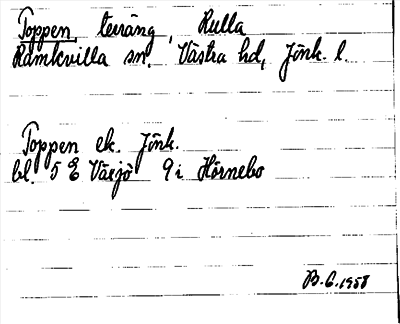 Toppen, terräng, Hulla
Ramkvilla sn. Västra hd, Jönk. l.
Toppen ek. Jönk.
bl. 5 E Växjö 9 i Hörnebo
B. G. 1958